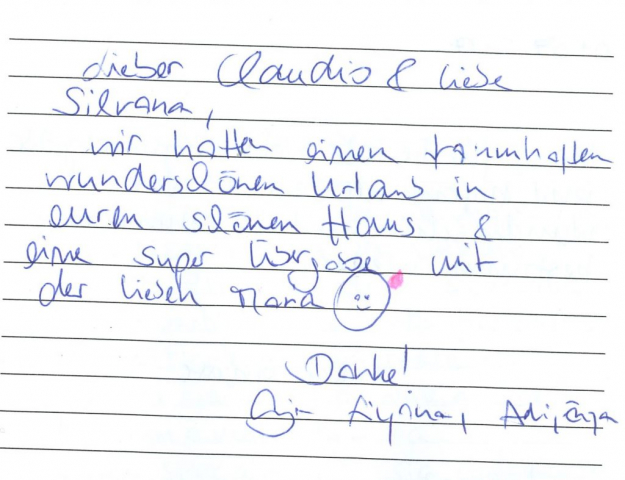 Lieber Claudio & liebe
Silvana,
wir hatten einen traumhaften
wunderschönen Urlaub in
euren schönen Haus &
eine super Übergabe mit
der lieben Mara
Danke!